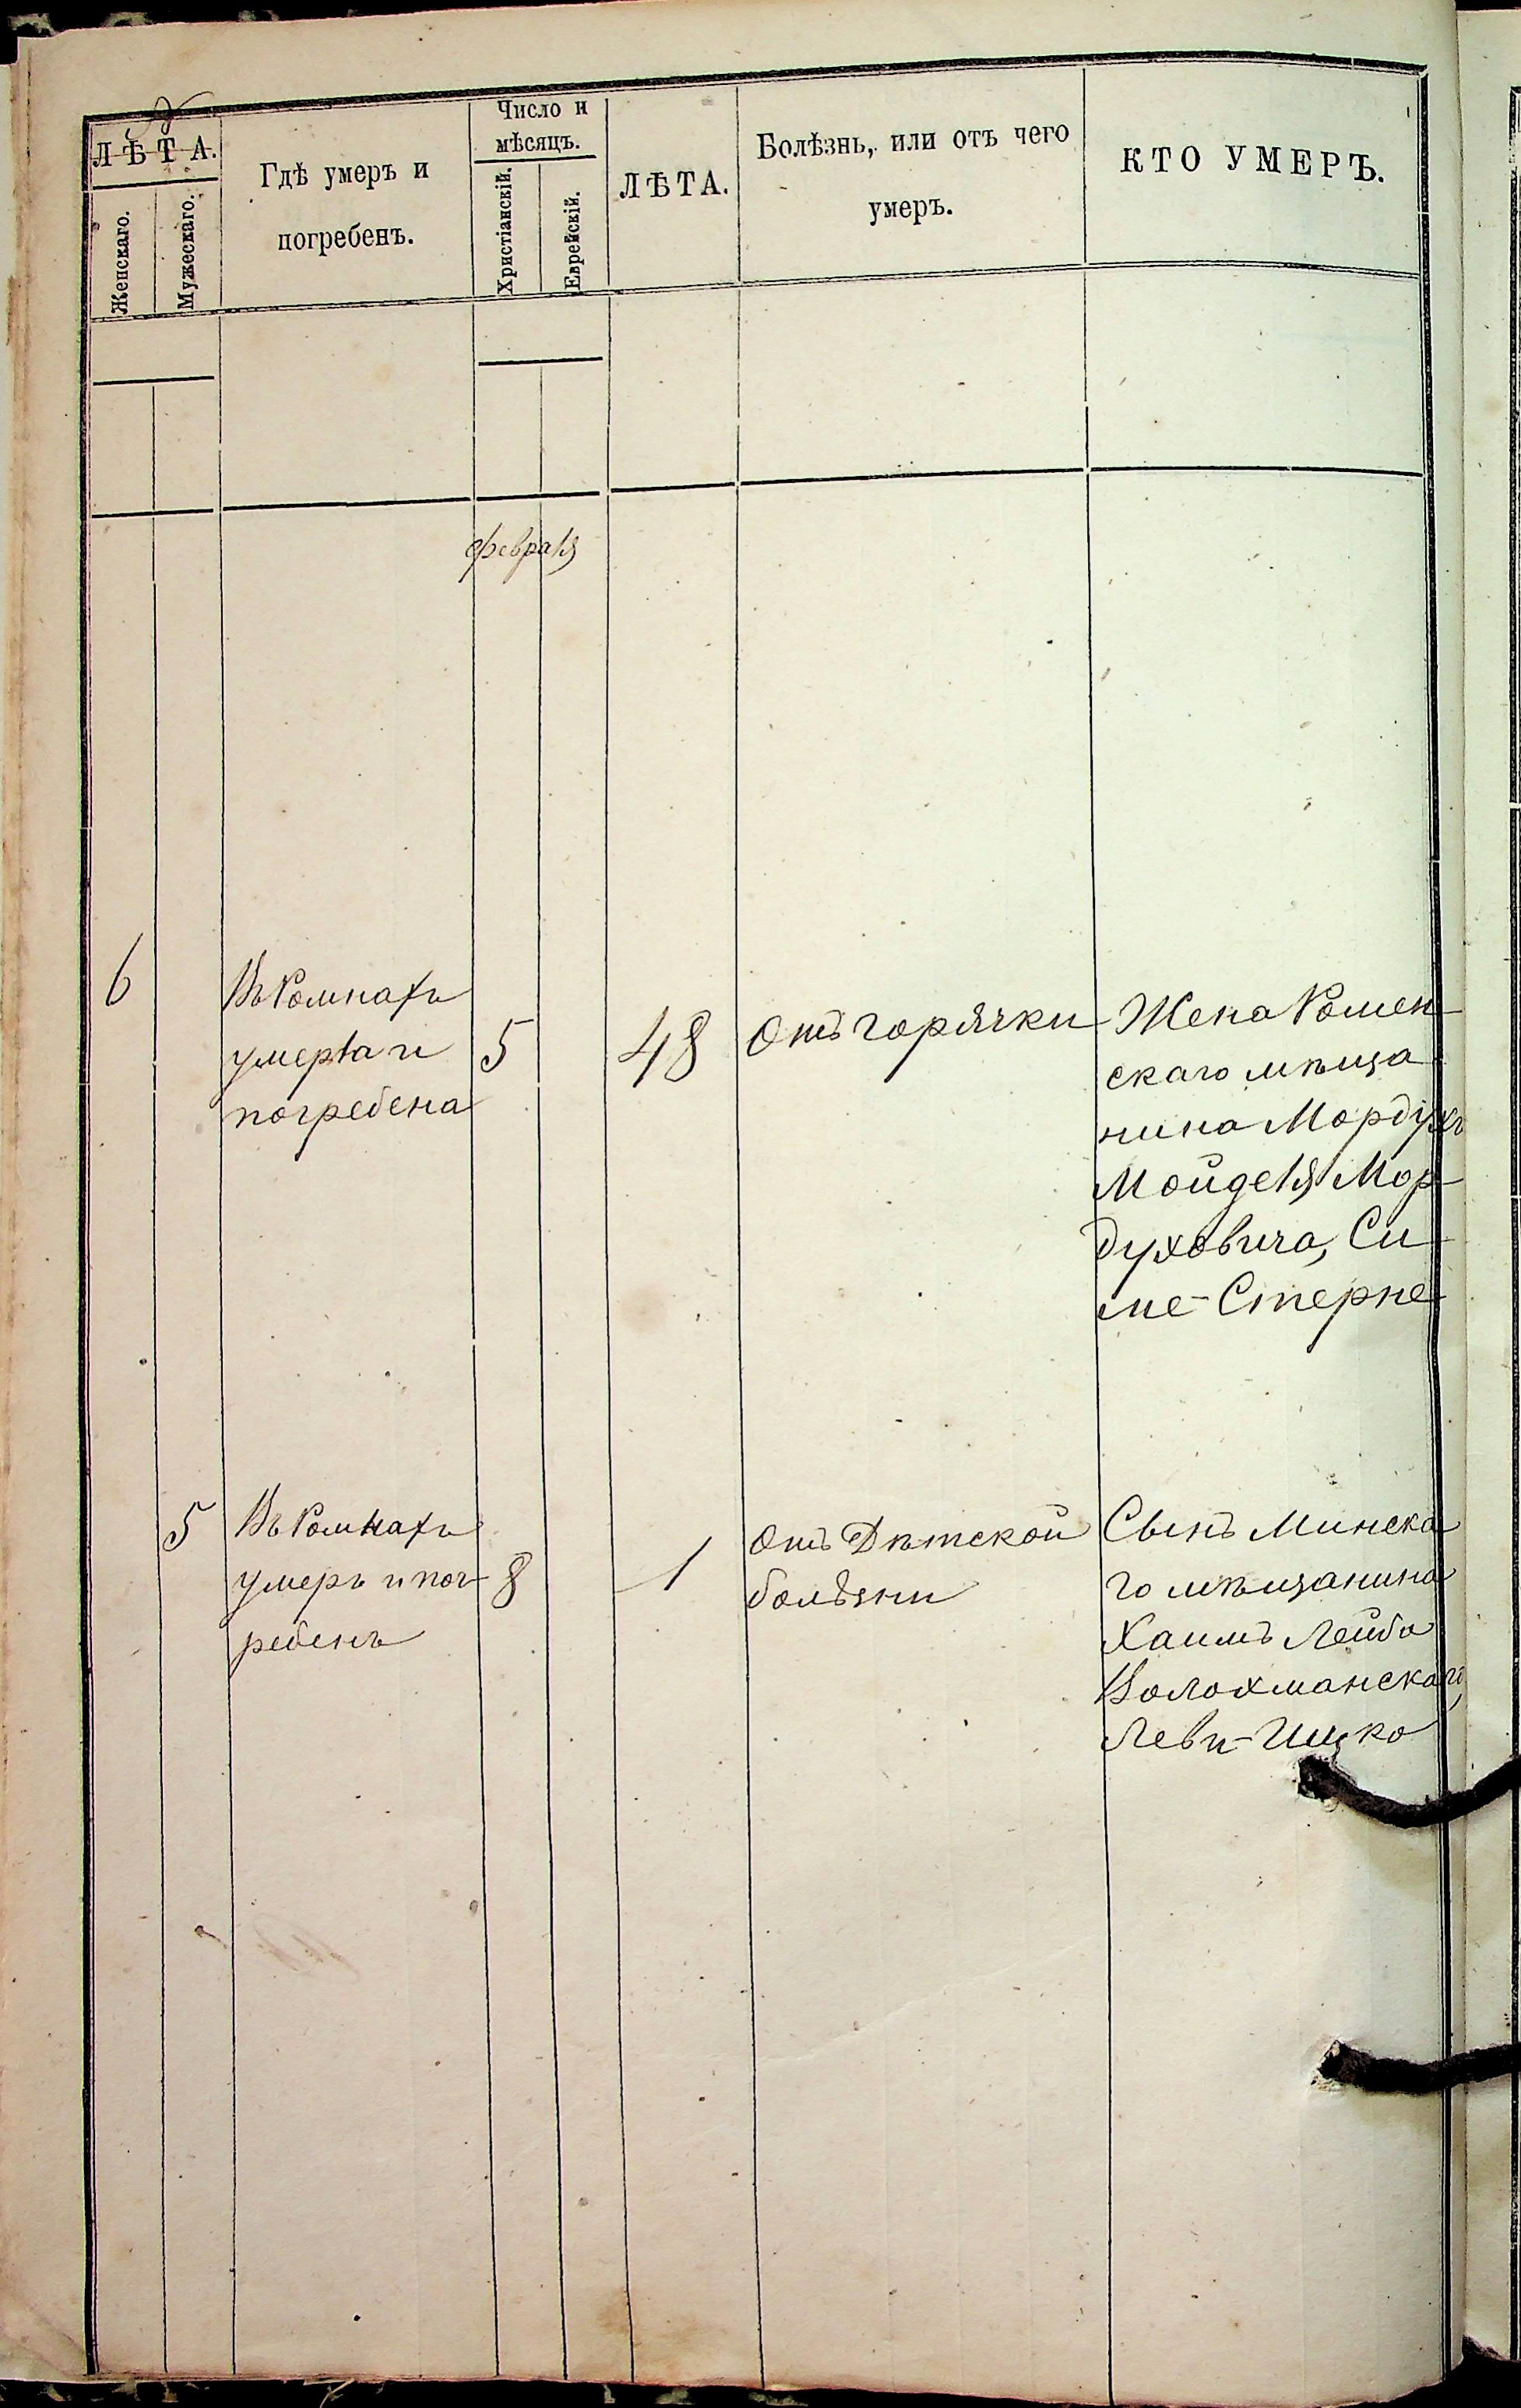 №
ЛѢТА.
Женскаго.
Мужескаго.
Гдѣ умеръ и
погребенъ.
Число и
мѣсяцъ.
Христіанскій.
Еврейскій.
ЛѢТА.
Болѣзнь, или отъ чего
умеръ.
КТО УМЕРЪ.
февраля
6
Въ Ромнахъ
умерла и
погребена
5
48
Отъ горячки
Жена Ромен-
скаго мѣща
нина Мордухъ
Мойделя Мор-
духовича, Си-
ме-Стерне
5
Въ Ромнахъ
умеръ и пог-
ребенъ
8
1
Отъ Дѣтской
болѣзни
Сынъ Минска
го мѣщанина
Хаимъ Лейба
Волохманскаго,
Леви-Ицко